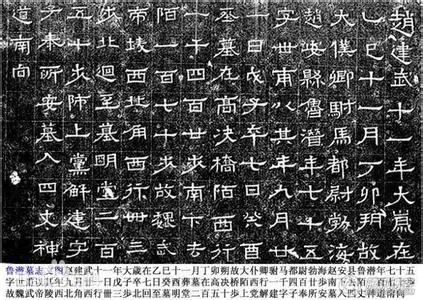 趙建武十一年大歲在
乙巳十一月丁卯朔故
大僕卿駙馬都尉勃海
趙安縣魯潛年七十五
字世甫以其年九月廿
一日戊子卒七日癸酉
葬墓在高决橋陌西行
一千四百廿步南下去
陌一百七十步故魏武
帝陵西北角西行卌三
步北迴至墓明堂二百
五十步師上黨解建字
子奉所安墓入四丈神
道南向
鲁潜墓志文图赵建武十一年大岁在乙巳十一月丁卯朔故大仆卿驸马都尉勃海赵安县鲁潜年七十五
字世甫以其年九月廿一日戊子卒七日癸酉葬墓在高决桥陌西行一千四百廿步南下去陌一百七十步
故魏武帝陵西北角西行卅三步北回至墓明堂二百五十步上党解建字子奉所安墓入四丈神道南向